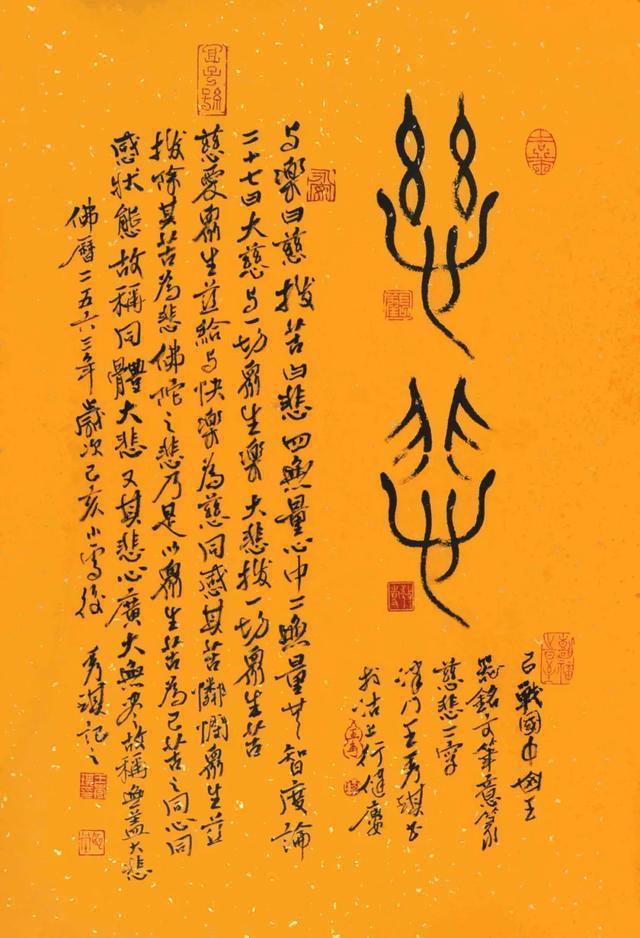 慈悲
以戰國中山王
器銘文筆意篆
慈悲二字
津門王秀琪書
於沽上行健廬
宜子孫
与樂曰慈拔苦曰悲四無量心中二無量也智度論
二十七曰大慈与一切眾生樂大悲拔一切眾生苦
慈愛眾生並給与快樂為慈同感其苦憐憫眾生並
拔除其苦為悲佛陀之悲乃是以眾生苦為己苦之同心同
感狀態故稱同體大悲又其悲心廣大無盡故稱無蓋大悲
佛曆二五六三年歲次己亥小雪後 秀琪記之